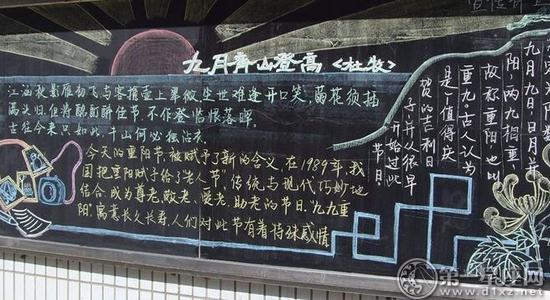 九月齐山登高<杜牧>
江涵秋影雁初飞与客携壶上翠微尘世难逢开口笑,菊花须插
满头归,但将酩酊酬佳节,不作登临恨落晖
古往今来只如此,牛山何必独沾衣
今天的重阳节,被赋予了新的含义,在1989年,我
国把重阳赋予给了"老人节"传统与现代巧妙地
结合,成为尊老、敬老、爱老、助老的节日"九九重
阳"寓意长久长寿,人们对此节有着特殊感情
九月九日,日月并
阳,两九相重,
故称重阳,也叫
重九。古人认为
是个值得庆
贺的吉利日
子,并从很早
开始过此
节日
第一星座网
www.d1xz.net